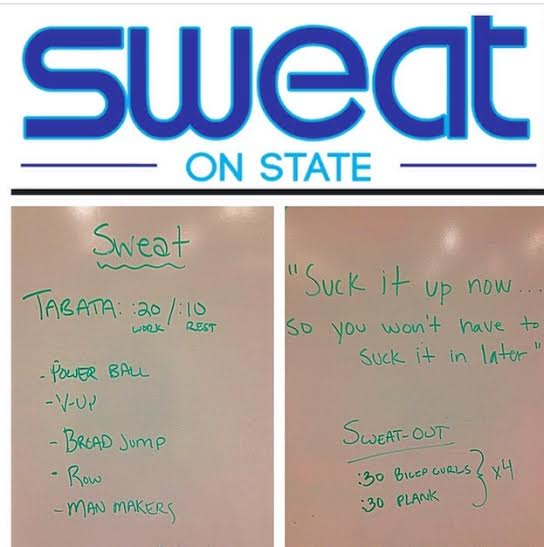 sweat
ON STATE
Sweat
TABATA: :20/:10
WORK REST
- POWER BALL
- V-UP
- BROAD JUMP
- ROW
- MAN MAKERS
"Suck it up now...
so you won't have to
suck it in later"
SWEAT-OUT
:30 BICEP CURLS } x4
:30 PLANK